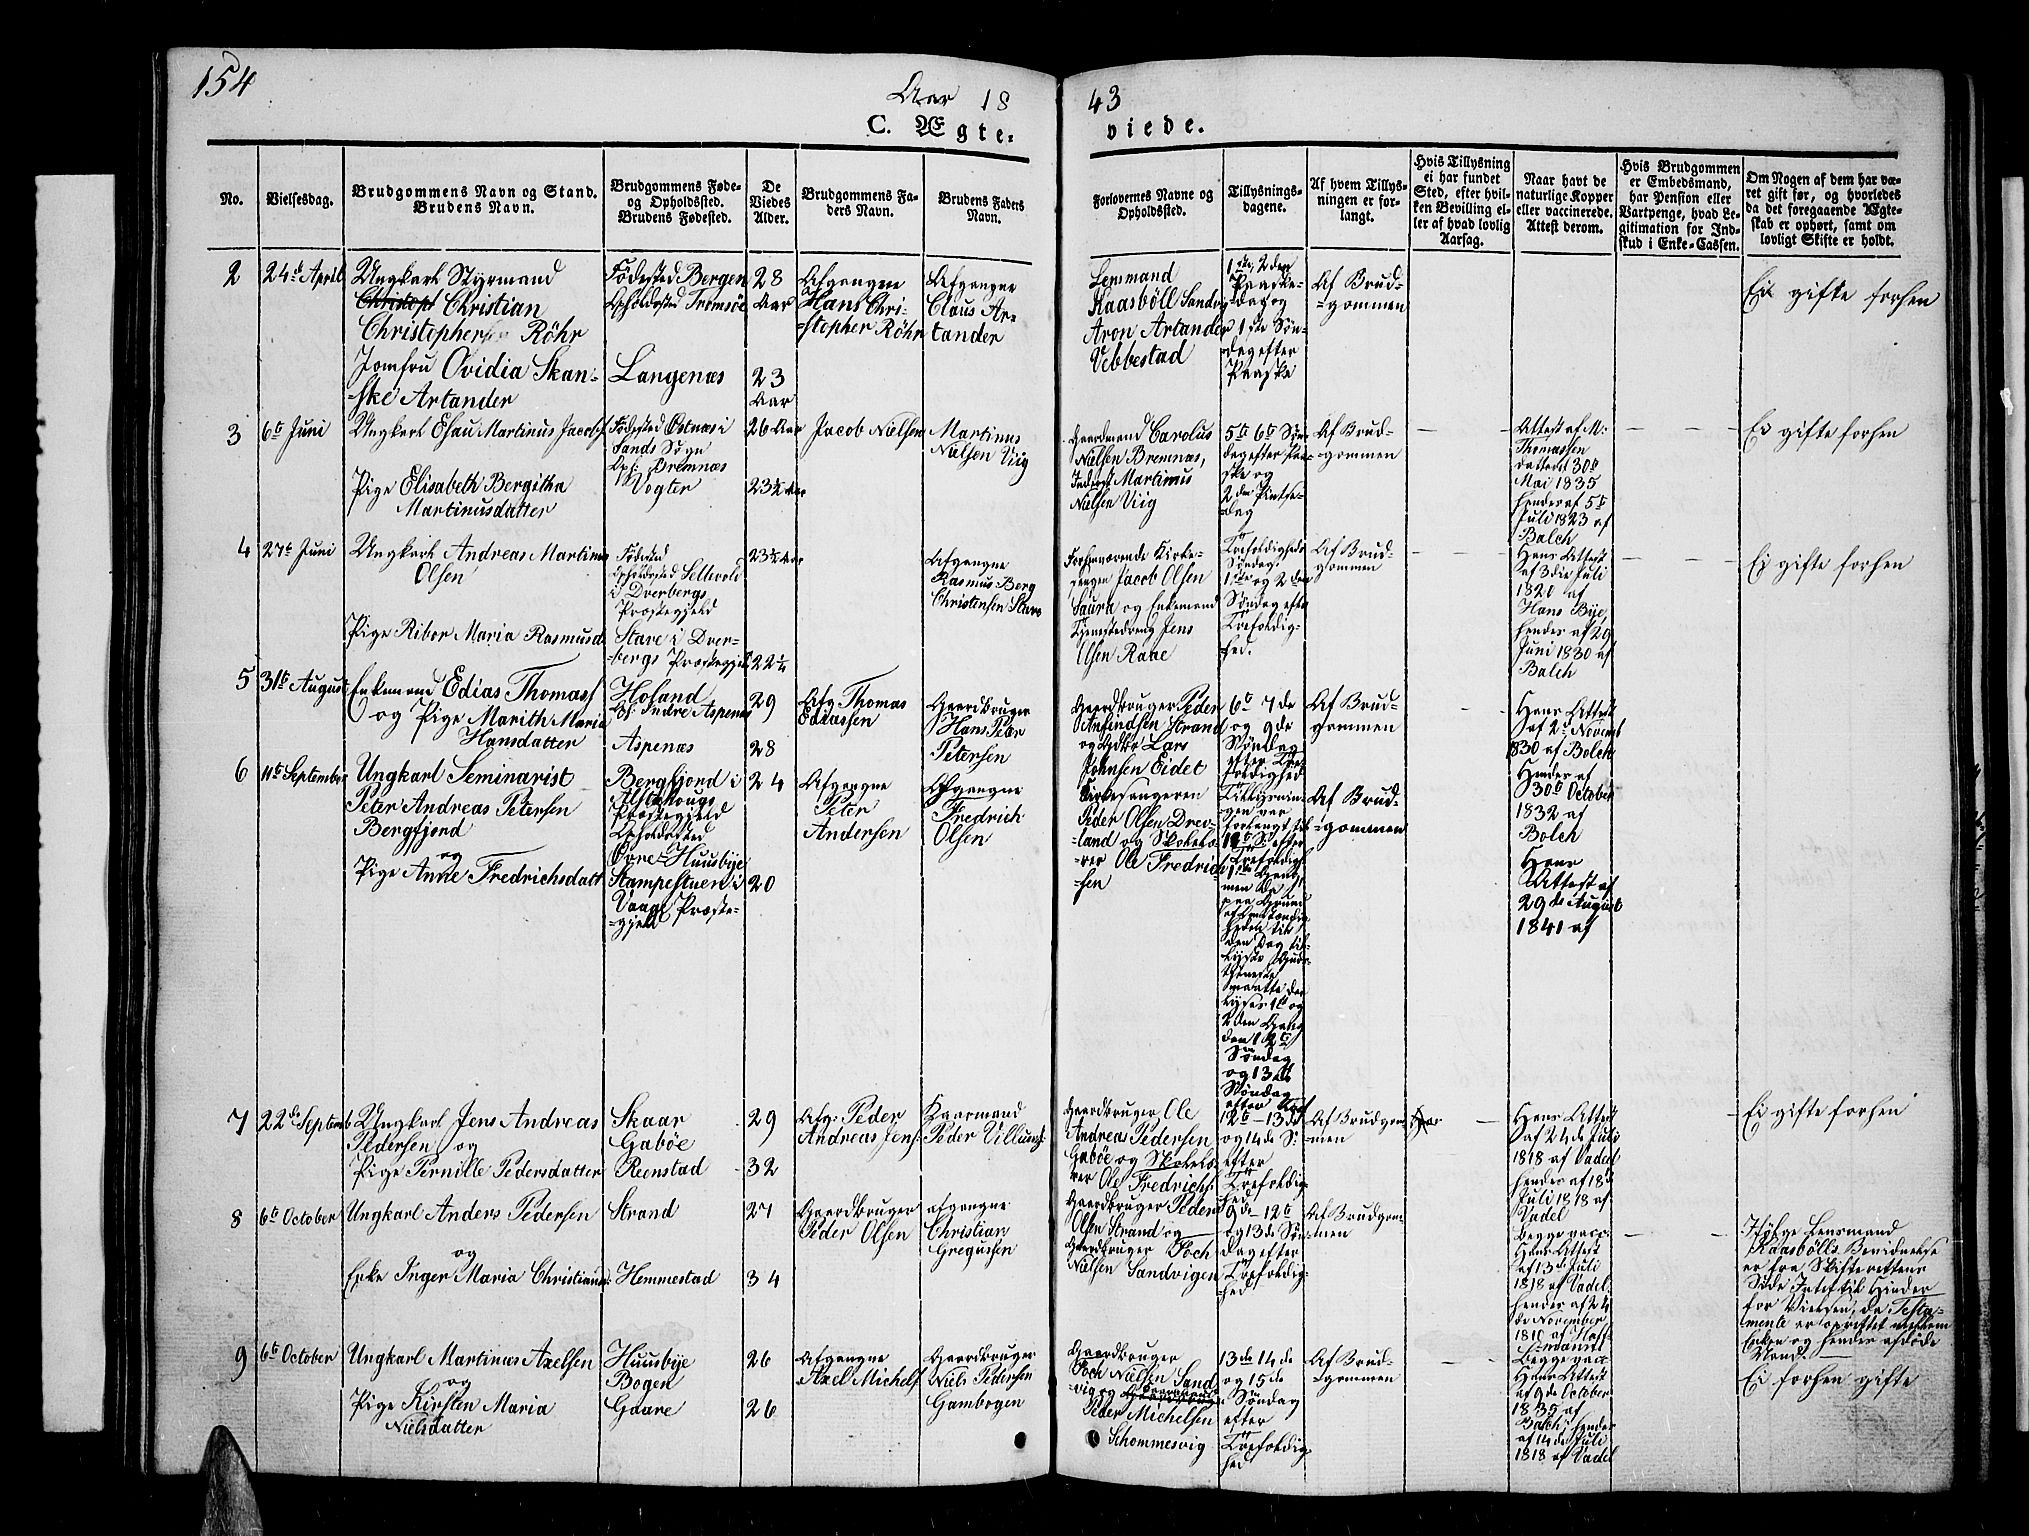 154
Aar 18 43
C. Ægte- viede.
No.
Vielsesdag.
Brudgommens Navn og Stand.
Brudens Navn.
Brudgommens Føde-
og Opholdssted.
Brudens Fødested.
De
Viedes
Alder.
Brudgommens Fa-
ders Navn.
Brudens Faders
Navn.
Forlovernes Navne og
Opholdssted.
Tillysnings-
dagene.
Af hvem Tillys-
ningen er for-
langt.
Hvis Tillysning
ei har fundet
Sted, efter hvil-
ken Bevilling el-
ler af hvad lovlig
Aarsag.
Naar havt de
naturlige Kopper
eller vaccinerede.
Attest derom.
Hvis Brudgommen
er Embedsmand,
har Pension eller
Vartpenge, hvad Le-
gitimation for Ind-
skud i Enke-Cassen.
Om Nogen af dem har væ-
ret gift før, og hvorledes
da det foregaaende Ægte-
skab er ophørt, samt om
lovligt Skifte er holdt.
2
24de April
Ungkarl Styrmand
Christian
Christophersen Röhr
Jomfru Ovidia Skan-
-ske Artander
Födested Bergen
Opholdssted Tromsöe
Langenæs
28
Aar
23
Aar
Afgangne
Hans Chri-
-stopher Röhr
Afgangne
Claus Ar-
tander
Lensmand
Kaasböll Sandvig
Aron Artander
Vebbestad
1ste, 2den
Paaske-
-dag og
1ste Søn-
-dag efter
Paaske
Af Brud-
-gommen
Ei gifte forhen
3
6te Juni
Ungkarl Esau Martinus Jacobs
Pige Elisabeth Bergitha
Martinusdatter
Födested Östnæs i
Sands Sogn
Oph: Bremnæs
Vogter
26 Aar
23½ Aar
Jacob Nielsen
Martinus
Nielsen Viig
Gaardmand Carolus
Nielsen Bremnæs,
Martinus
Nielsen Viig
5te 6te Søn-
dag efter Paa-
ske og
2den Pintse-
-dag
Af Brud-
gommen
Attest af M:
Thomassen
datteret 30te
Mai 1835
hendes af 5te
Juli 1823 af
Balch
Ei gifte forhen
4
27de Juni
Ungkarl Andreas Martinus
Olsen
Pige Ribor Maria Rasmusd
Födested
Opholdssted Sellevold
i Dverbergs
Præstegjeld
Stave i Dver-
-bergs Præstegjeld
23½ Aar
22¼
Afgangne
Rasmus Berg
Christensen Stave
Forhenværende Kirke-
sanger Jacob Olsen
Saura og Enkemand
Jens
Olsen Raae
Trefoldigheds
Søndag
1ste og 2den
Søndag efter
Trefoldig-
-hed.
Af Brud-
gommen
Hans Attest
af 3die Juli
1820 af
Hans Bye,
hendes af 29
Juni 1830 af
Balch
Ei gifte forhen
5
31te August
Enkemand Edias Thomass
og Pige Marith Maria
Hansdatter
Holand
Op: Indre Aspenæs
Aspenæs
29
28
Afg. Thomas
Ediassen
Gaardbruger
Hans Peter
Petersen
Gaardbruger Peder
Anfindsen Strand
og Gdbr Lars
Johnsen Eidet
6te 7de
og 9de
Søndag
efter Tre-
foldighed
Af Brud-
gommen
Hans Attest
af 2de Novemb
1830 af Bolch
Hendes af
30te October
1832 af
Bolch
6
11te September
Ungkarl Seminarist
Peter Andreas Petersen
Bergfjord
og
Pige Anne Fredrichsdatt
Bergfjord i
Alstahougs
Præstegjeld
Opholdssted
Övre-Huusbye
Stampestuen i
Vaage Præste-
-gjeld
24
20
Afgangne
Peter
Andersen
Afgangne
Fredrich
Olsen
Kirkesangeren
Peder Olsen Drev-
-land og Skolelæ-
-rer Ole Fredrich-
-sen
Tillysnin-
gen var
forlangt til
11te S: efter
Trefoldigh
paa Grund
den Dag til-
lyses 1te og
2den Gang
den 12te
Søndag
og 13de
Søndag
efter Tref
Af Brud-
gommen
Hans
Attest af
29de August
1841 af
7
22de Septemb
Ungkarl Jens Andreas
Pedersen og
Pige Pernille Pedersdatter
Skaar
Gaböe
Reenstad
29
32
Afg: Peder
Andreas Jens
Kaarmand
Peder Villums
Gaardbruger Ole
Andreas Pedersen
Gaböe og Skolelæ-
rer Ole Fredrichs
12te-13de
og 14de S:
efter
Trefoldig-
hed
Af Brudgom-
men
Hans Attest
af 24de Juli
1818 af Vadel
hendes af 18de
Juli 1818 af
Vadel
Ei gifte forhen
8
6te October
Ungkarl Anders Pedersen
og
Enke Inger Maria Christians:
Strand
Hemmestad
27
34
Gaardbruger
Peder Olsen
afgangne
Christian
Gregussen
Gaardbruger Peder
Olsen Strand og
Gaardbruger Joch
Nielsen Sandvigen
9de 12te
og 13de Søn-
dag efter
Trefoldig-
-hed
Af Brudgom-
-men
Begge vacc:
Hans Attest
af 13de Juli
1818 af Vadel.
hendes af 24
de November
1810 af Hoff
Ifölge Lensmand
Kaasbölls Bevidnelse
er fra Skifterettens
Side Intet til Hinder
for Vielsen, da Testa-
mente er oprettet mellem
Enken og hendes afdöde
Mand.
9
6te October
Ungkarl Martinus Axelsen
og
Pige Kirsten Maria
Nielsdatter
Huusbye
Bogen
Gaare
26
26
Afgangne
Axel Michels
Gaardbruger
Niels Pedersen
Gambogen
Gaardbruger
Joch Nielsen Sand
vig og
Peder Michelsen
Schommesvig
13de 14de
og 15de
Søndag
efter
Trefoldig-
hed
Af Brud-
gommen
Begge vacc:
Hans Attest
af 9de October
1835 af
Balch, hendes
af 14de Juli
1818 af Vadel
Ei forhen gifte